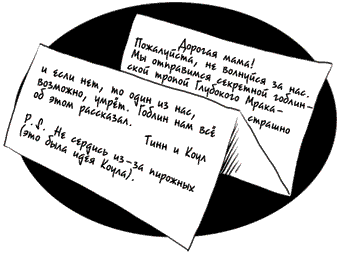 Дорогая мама!
Пожалуйста, не волнуйся за нас.
Мы отправимся секретной гоблин-
ской тропой Глубокого Мрака-
страшно
и если нет, то один из нас,
возможно, умрёт. Гоблин нам всё
об этом рассказал.
Тинн и Коул
P. S. Не сердись из-за пирожных
(это была идея Коула).